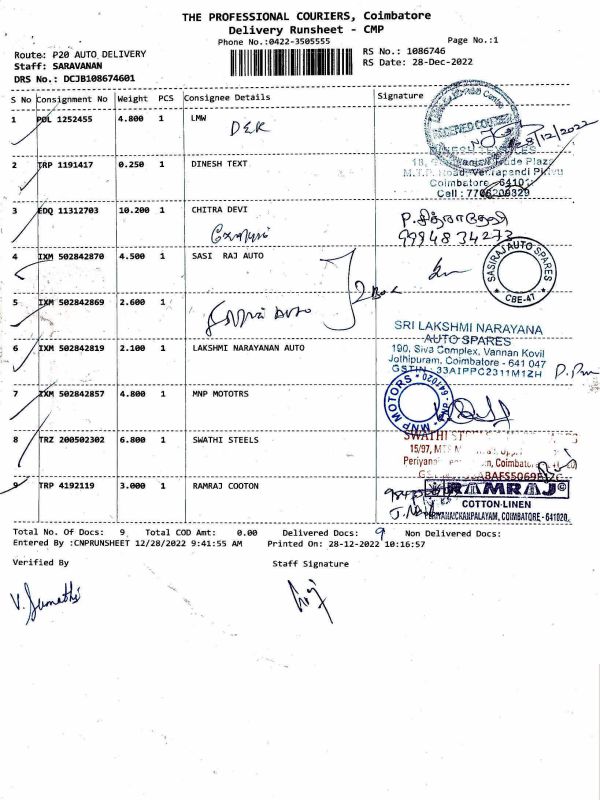 THE PROFESSIONAL COURIERS, Coimbatore
Delivery Runsheet - CMP
Phone No.:0422-3505555
Page No.:1
Route: P20 AUTO DELIVERY
RS No.: 1086746
Staff: SARAVANAN
RS Date: 28-Dec-2022
DRS No.: DCJB108674601
S No Consignment No Weight PCS Consignee Details Signature
1 POL 1252455 4.800 1 LMW
DER
RECEIVED
28/12/2022
2 TRP 1191417 0.250 1 DINESH TEXT
Coimbatore - 64102
Cell : 7706209329
3 EDQ 11312703 10.200 1 CHITRA DEVI
P. சித்ராதேவி
9994834273
4 IXM 502842870 4.500 1 SASI RAJ AUTO
SASIRAJ AUTO SPARES
CBE-47
5 IXM 502842869 2.600 1
SRI LAKSHMI NARAYANA
AUTO SPARES
6 IXM 502842819 2.100 1 LAKSHMI NARAYANAN AUTO
190, Siva Complex, Vannan Kovil
Jothipuram, Coimbatore - 641 047
GSTIN : 33AIPPC2311M1ZH
7 IXM 502842857 4.800 1 MNP MOTOTRS
MNP MOTORS
641020
8 TRZ 200502302 6.800 1 SWATHI STEELS
SWATHI
15/97,
Periyana
Coimbatore
9 TRP 4192119 3.000 1 RAMRAJ COOTON
RAMRAJ©
COTTON-LINEN
PERIYANAICKANPALAYAM, COIMBATORE - 641020.
Total No. Of Docs: 9 Total COD Amt: 0.00 Delivered Docs: 9 Non Delivered Docs:
Entered By :CNPRUNSHEET 12/28/2022 9:41:55 AM Printed On: 28-12-2022 10:16:57
Verified By Staff Signature
V. Sumathi